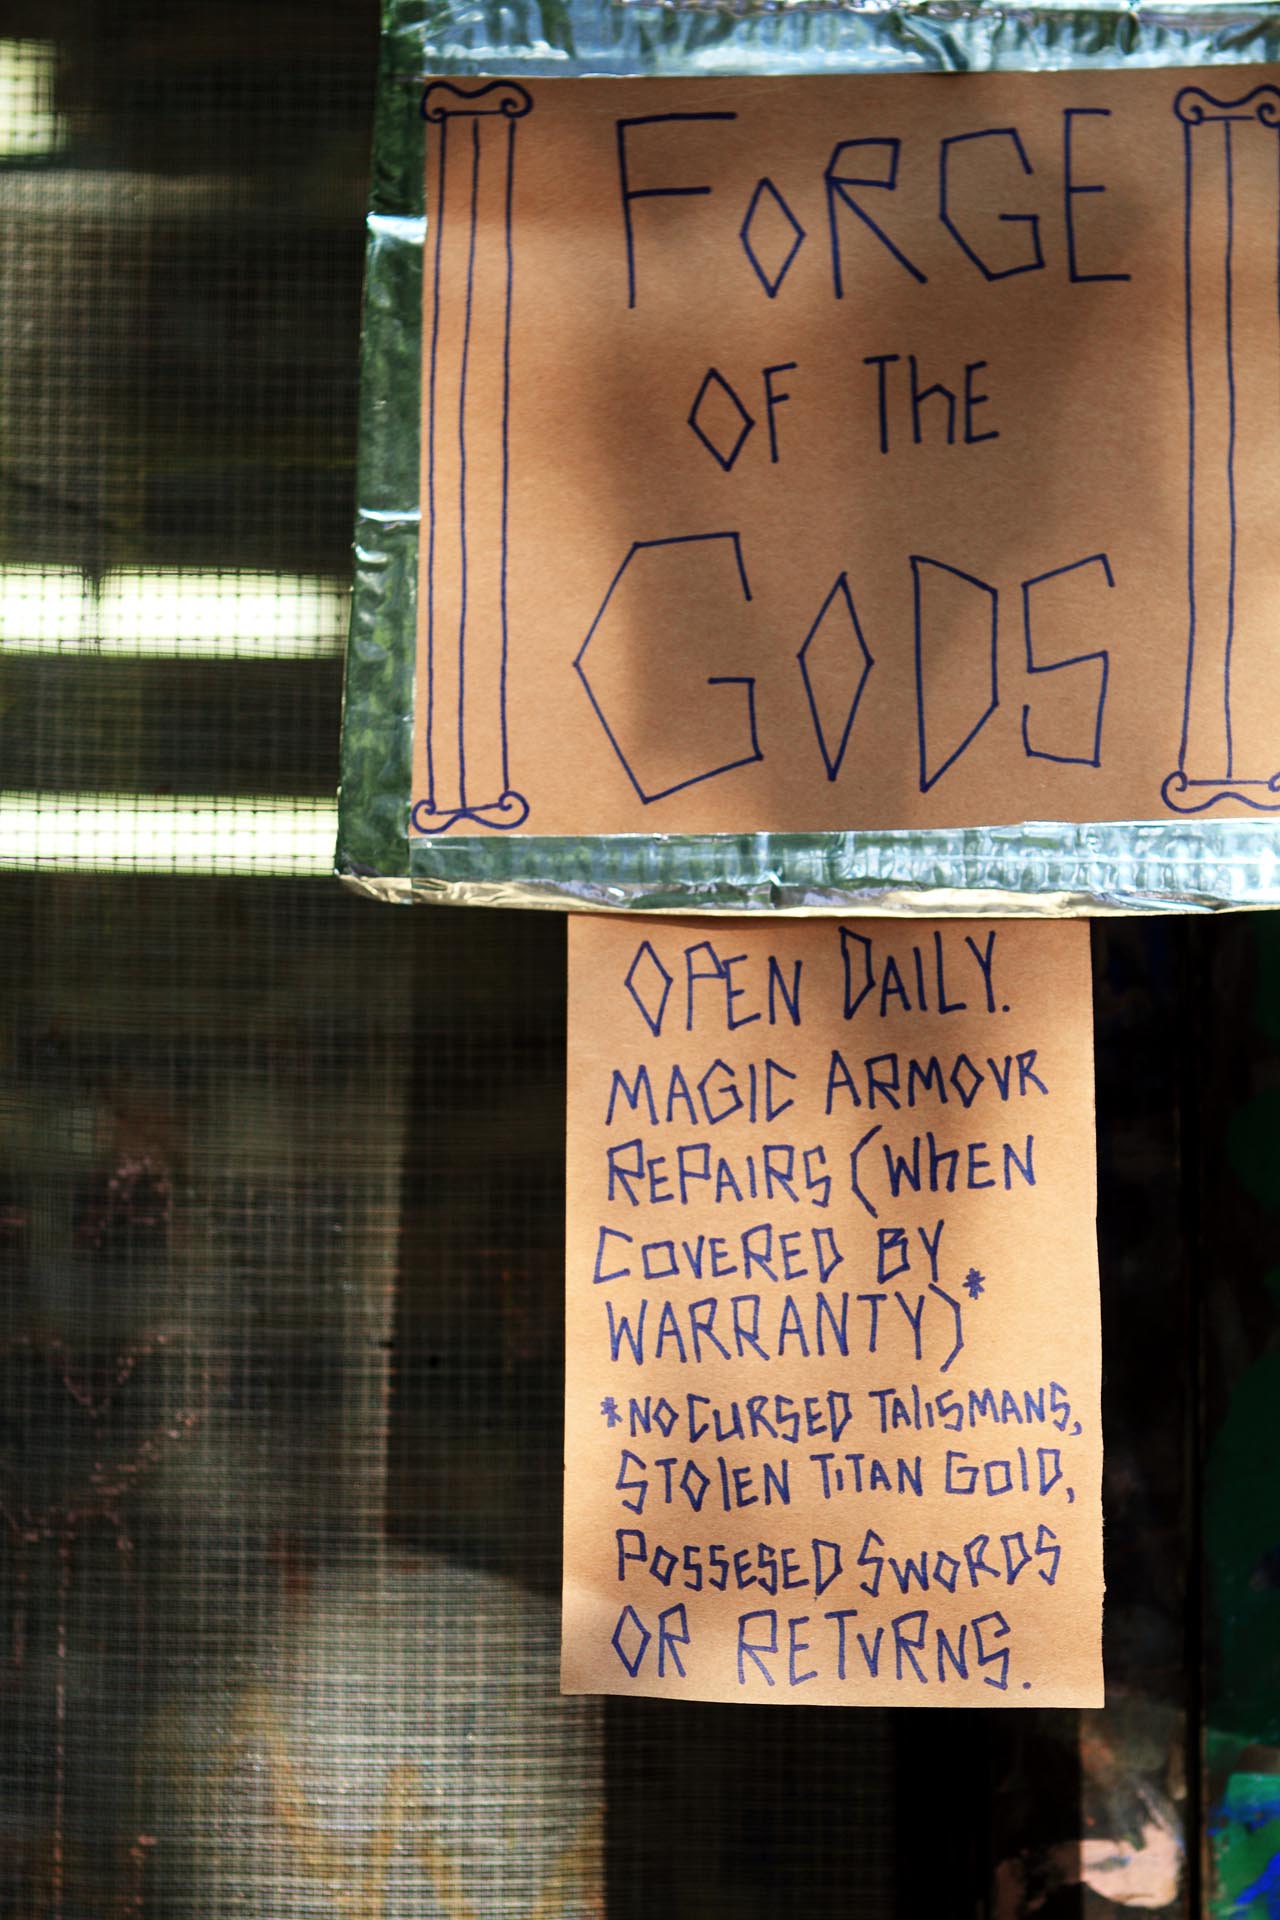 FORGE
OF THE
GODS
OPEN DAILY.
MAGIC ARMOUR
REPAIRS (WHEN
COVERED BY
WARRANTY)*
*NO CURSED TALISMANS,
STOLEN TITAN GOLD,
POSSESED SWORDS
OR RETURNS.